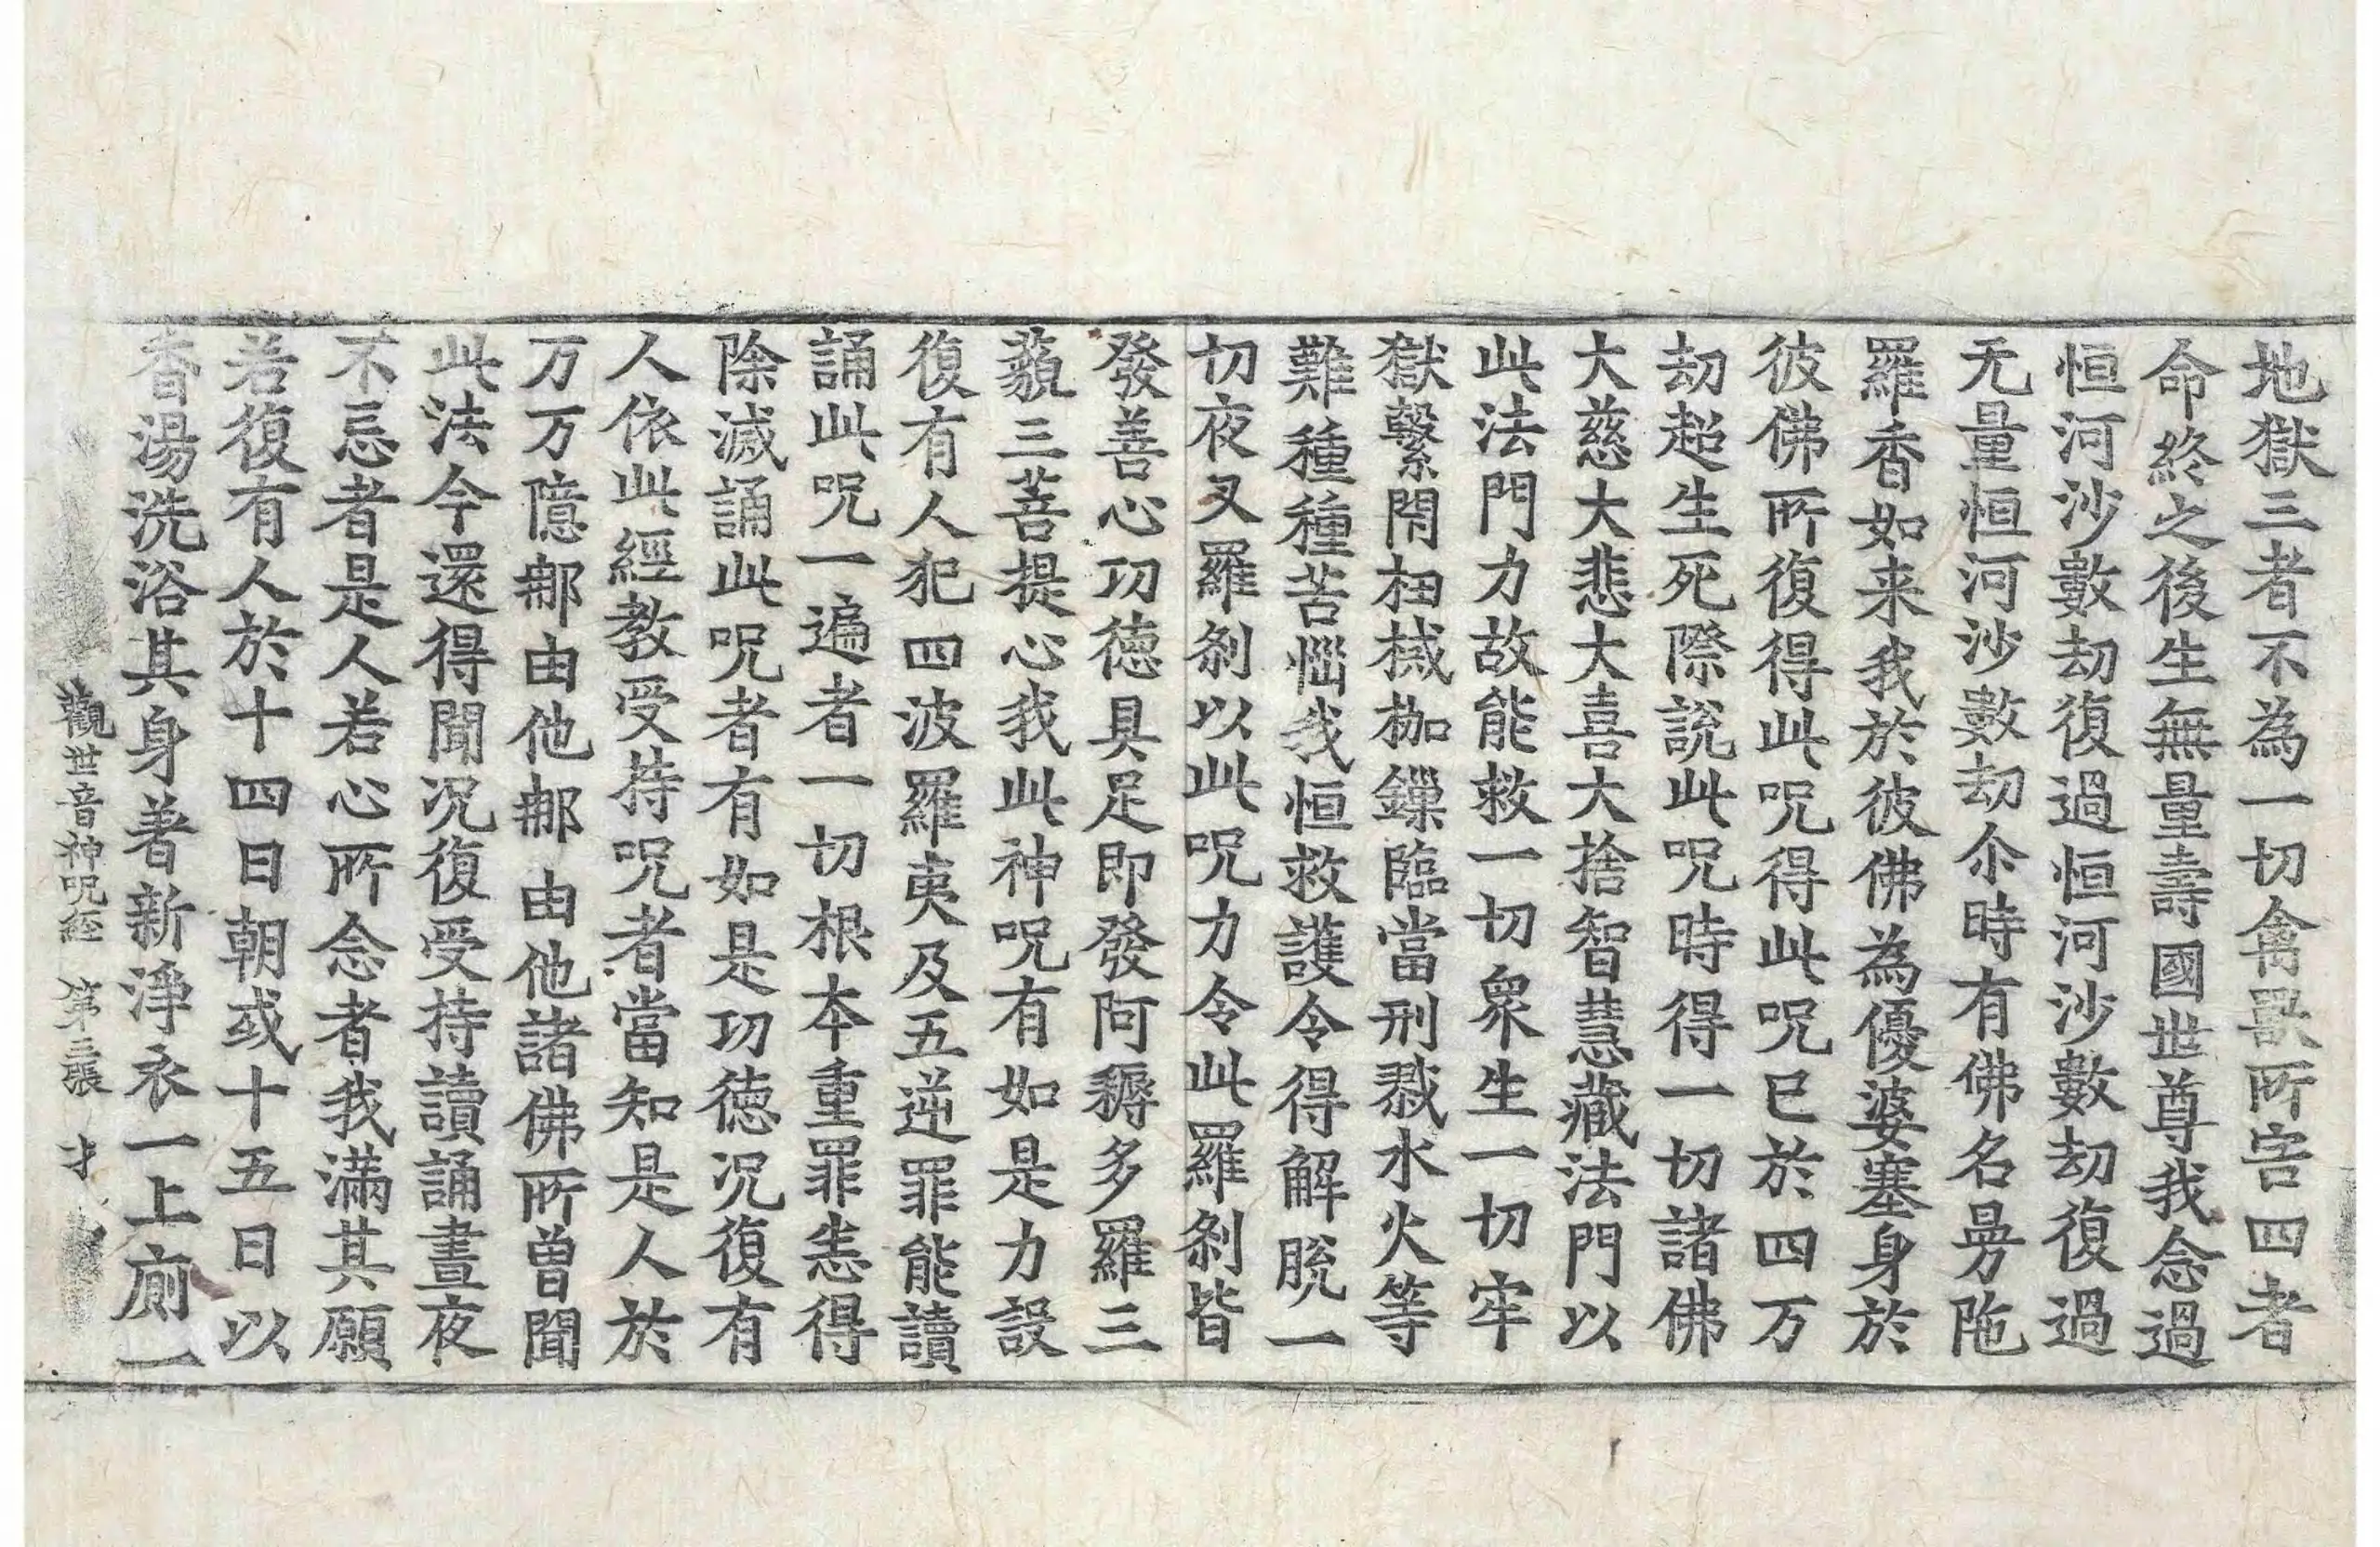 地獄三者不為一切禽獸所害四者
命終之後生無量壽國世尊我念過
恒河沙數劫復過恒河沙數劫復過
无量恒河沙數劫尒時有佛名曼陁
羅香如来我於彼佛為優婆塞身於
彼佛所復得此呪得此呪已於四万
劫超生死際說此呪時得一切諸佛
大慈大悲大喜大捨智慧藏法門以
此法門力故能救一切衆生一切牢
獄繫閇杻械枷鏁臨當刑戮水火等
難種種苦惱我恒救護令得解脫一
切夜叉羅剎以此呪力令此羅剎皆
發善心功德具足即發阿耨多羅三
藐三菩提心我此神呪有如是力設
復有人犯四波羅夷及五逆罪能讀
誦此呪一遍者一切根本重罪悉得
除滅誦此呪者有如是功德況復有
人依此經教受持呪者當知是人於
万万億鄁由他鄁由他諸佛所曽聞
此法今還得聞況復受持讀誦晝夜
不忘者是人若心所念者我滿其願
若復有人於十四日朝或十五日以
香湯洗浴其身著新淨衣一上廁一
觀世音神呪經 第三張 才